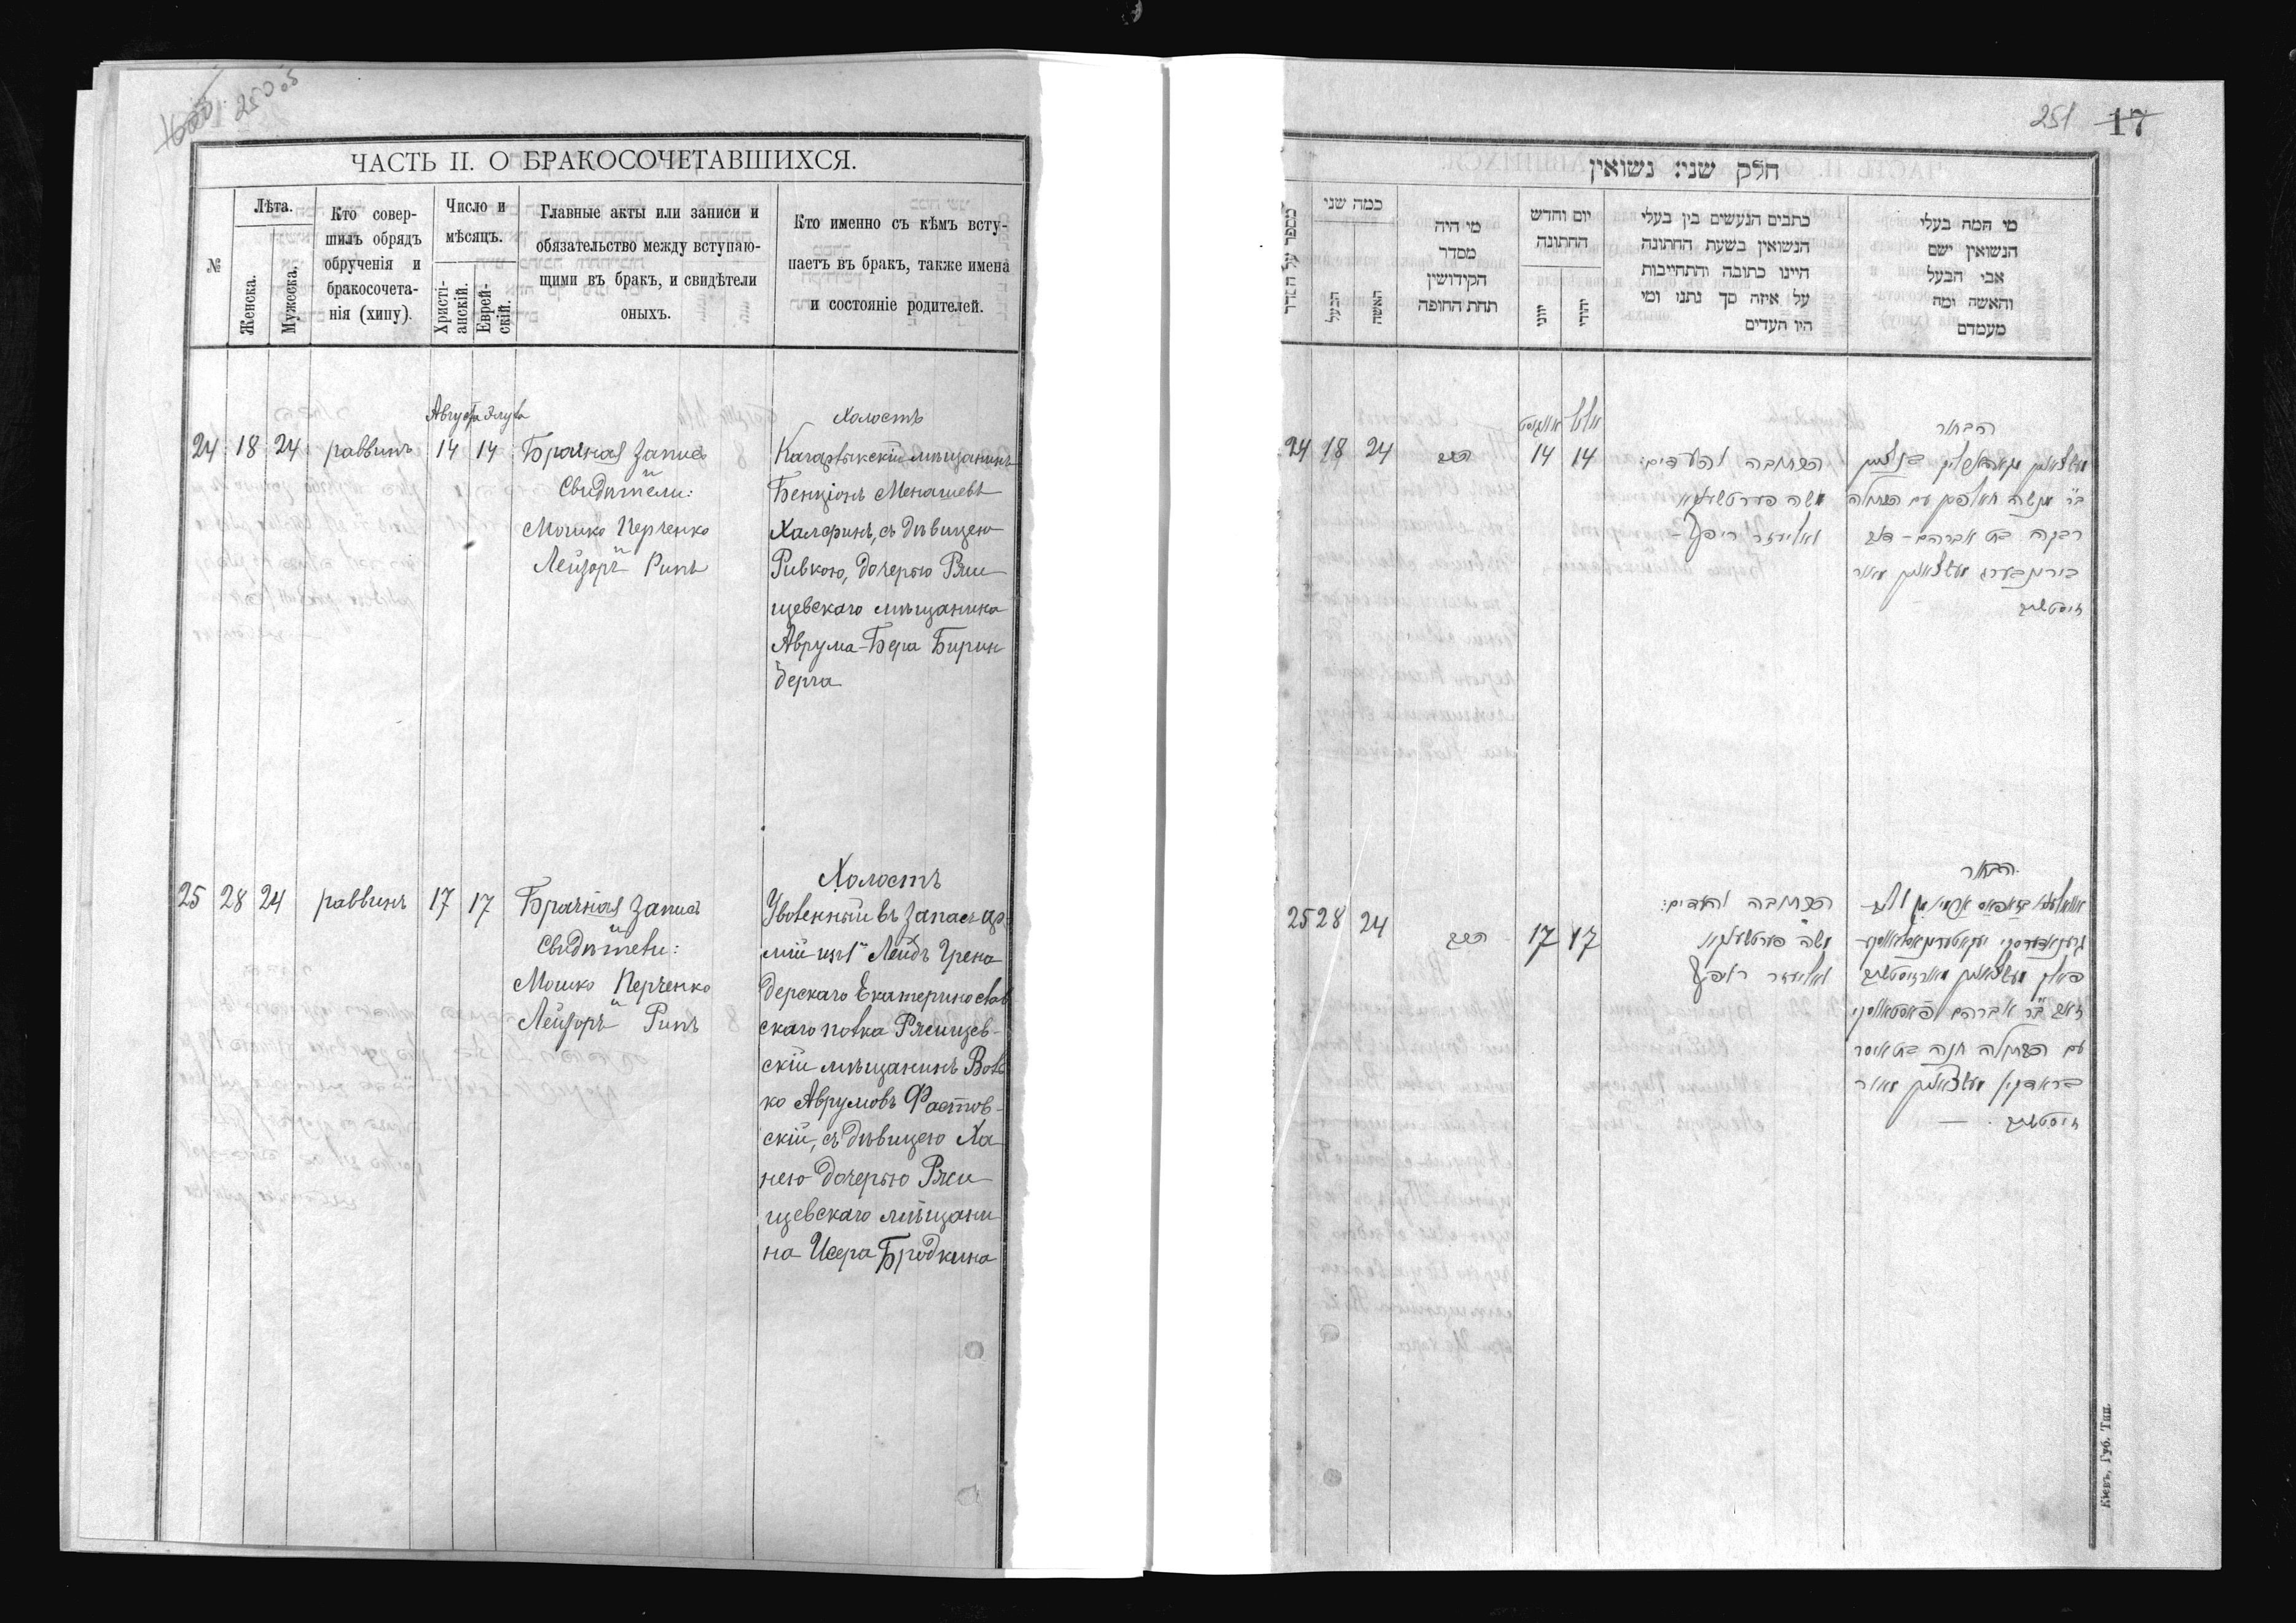 ЧАСТЬ II. О БРАКОСОЧЕТАВШИХСЯ.
№
Лѣта.
Женска.
Мужеска.
Кто совер-
шилъ обрядъ
обрученія и
бракосочета-
нія (хипу).
Число и
мѣсяцъ.
Христі-
анскій.
Еврей-
скій.
Главные акты или записи и
обязательство между вступаю-
щими въ бракъ, и свидѣтели
оныхъ.
Кто именно съ кѣмъ всту-
паетъ въ бракъ, также имена
и состояніе родителей.
Августа Элула
24 18 24 раввинъ 14 14
Брачная запись
и
Свидѣтели:
Мошко Перченко
и
Лейзоръ Рипъ
Холостъ
Кагарлыкскій мѣщанинъ
Бенціонъ Менашевъ
Халфинъ, съ дѣвицею
Ривкою, дочерью Ржи
щевскаго мѣщанина
Аврума-Бера Бирин
берга
25 28 24 раввинъ 17 17
Брачная запись
и
Свидѣтели:
Мошко Перченко
и
Лейзоръ Рипъ
Холостъ
Уволенный въ запасъ ар
міи изъ 1го Лейбъ Грена
дерскаго Екатеринослав
скаго полка Ржищев-
скій мѣщанинъ Воль
ко Аврумовъ Фастов-
скій, съ дѣвицею Ха
нею дочерью Ржи
щевскаго мѣщани
на Исера Бродкина
251 17
חלק שני: נשואין
מספר על הסדר
כמה שני
הבעל
האשה
מי היה
מסדר
הקידושין
תחת החופה
יום וחדש
החתונה
יוני
יהודי
כתבים הנעשים בין בעלי
הנשואין בשעת החתונה
היינו כתובה והתחייבות
על איזה סך נתנו ומי
היו העדים
מי המה בעלי
הנשואין ושם
אבי הבעל
והאשה ומה
מעמדם
אויגוסט אלול
24 18 24 הרב 14 14
הכתובה והעדים:
משה פערטשענקא
ואליעזר ריפ
הבחור
ב״ר מנשה חאלפין עם הבתולה
רבקה בת אברהם - דוב
בירינבערג
25 28 24 הרב 17 17
הכתובה והעדים:
משה פערטשענקא
ואליעזר ריפ
הבחור
זאב ב״ר אברהם פאסטאווסקי
עם הבתולה חנה בת איסר
בראדקין
Кіевъ, Губ. Тип.